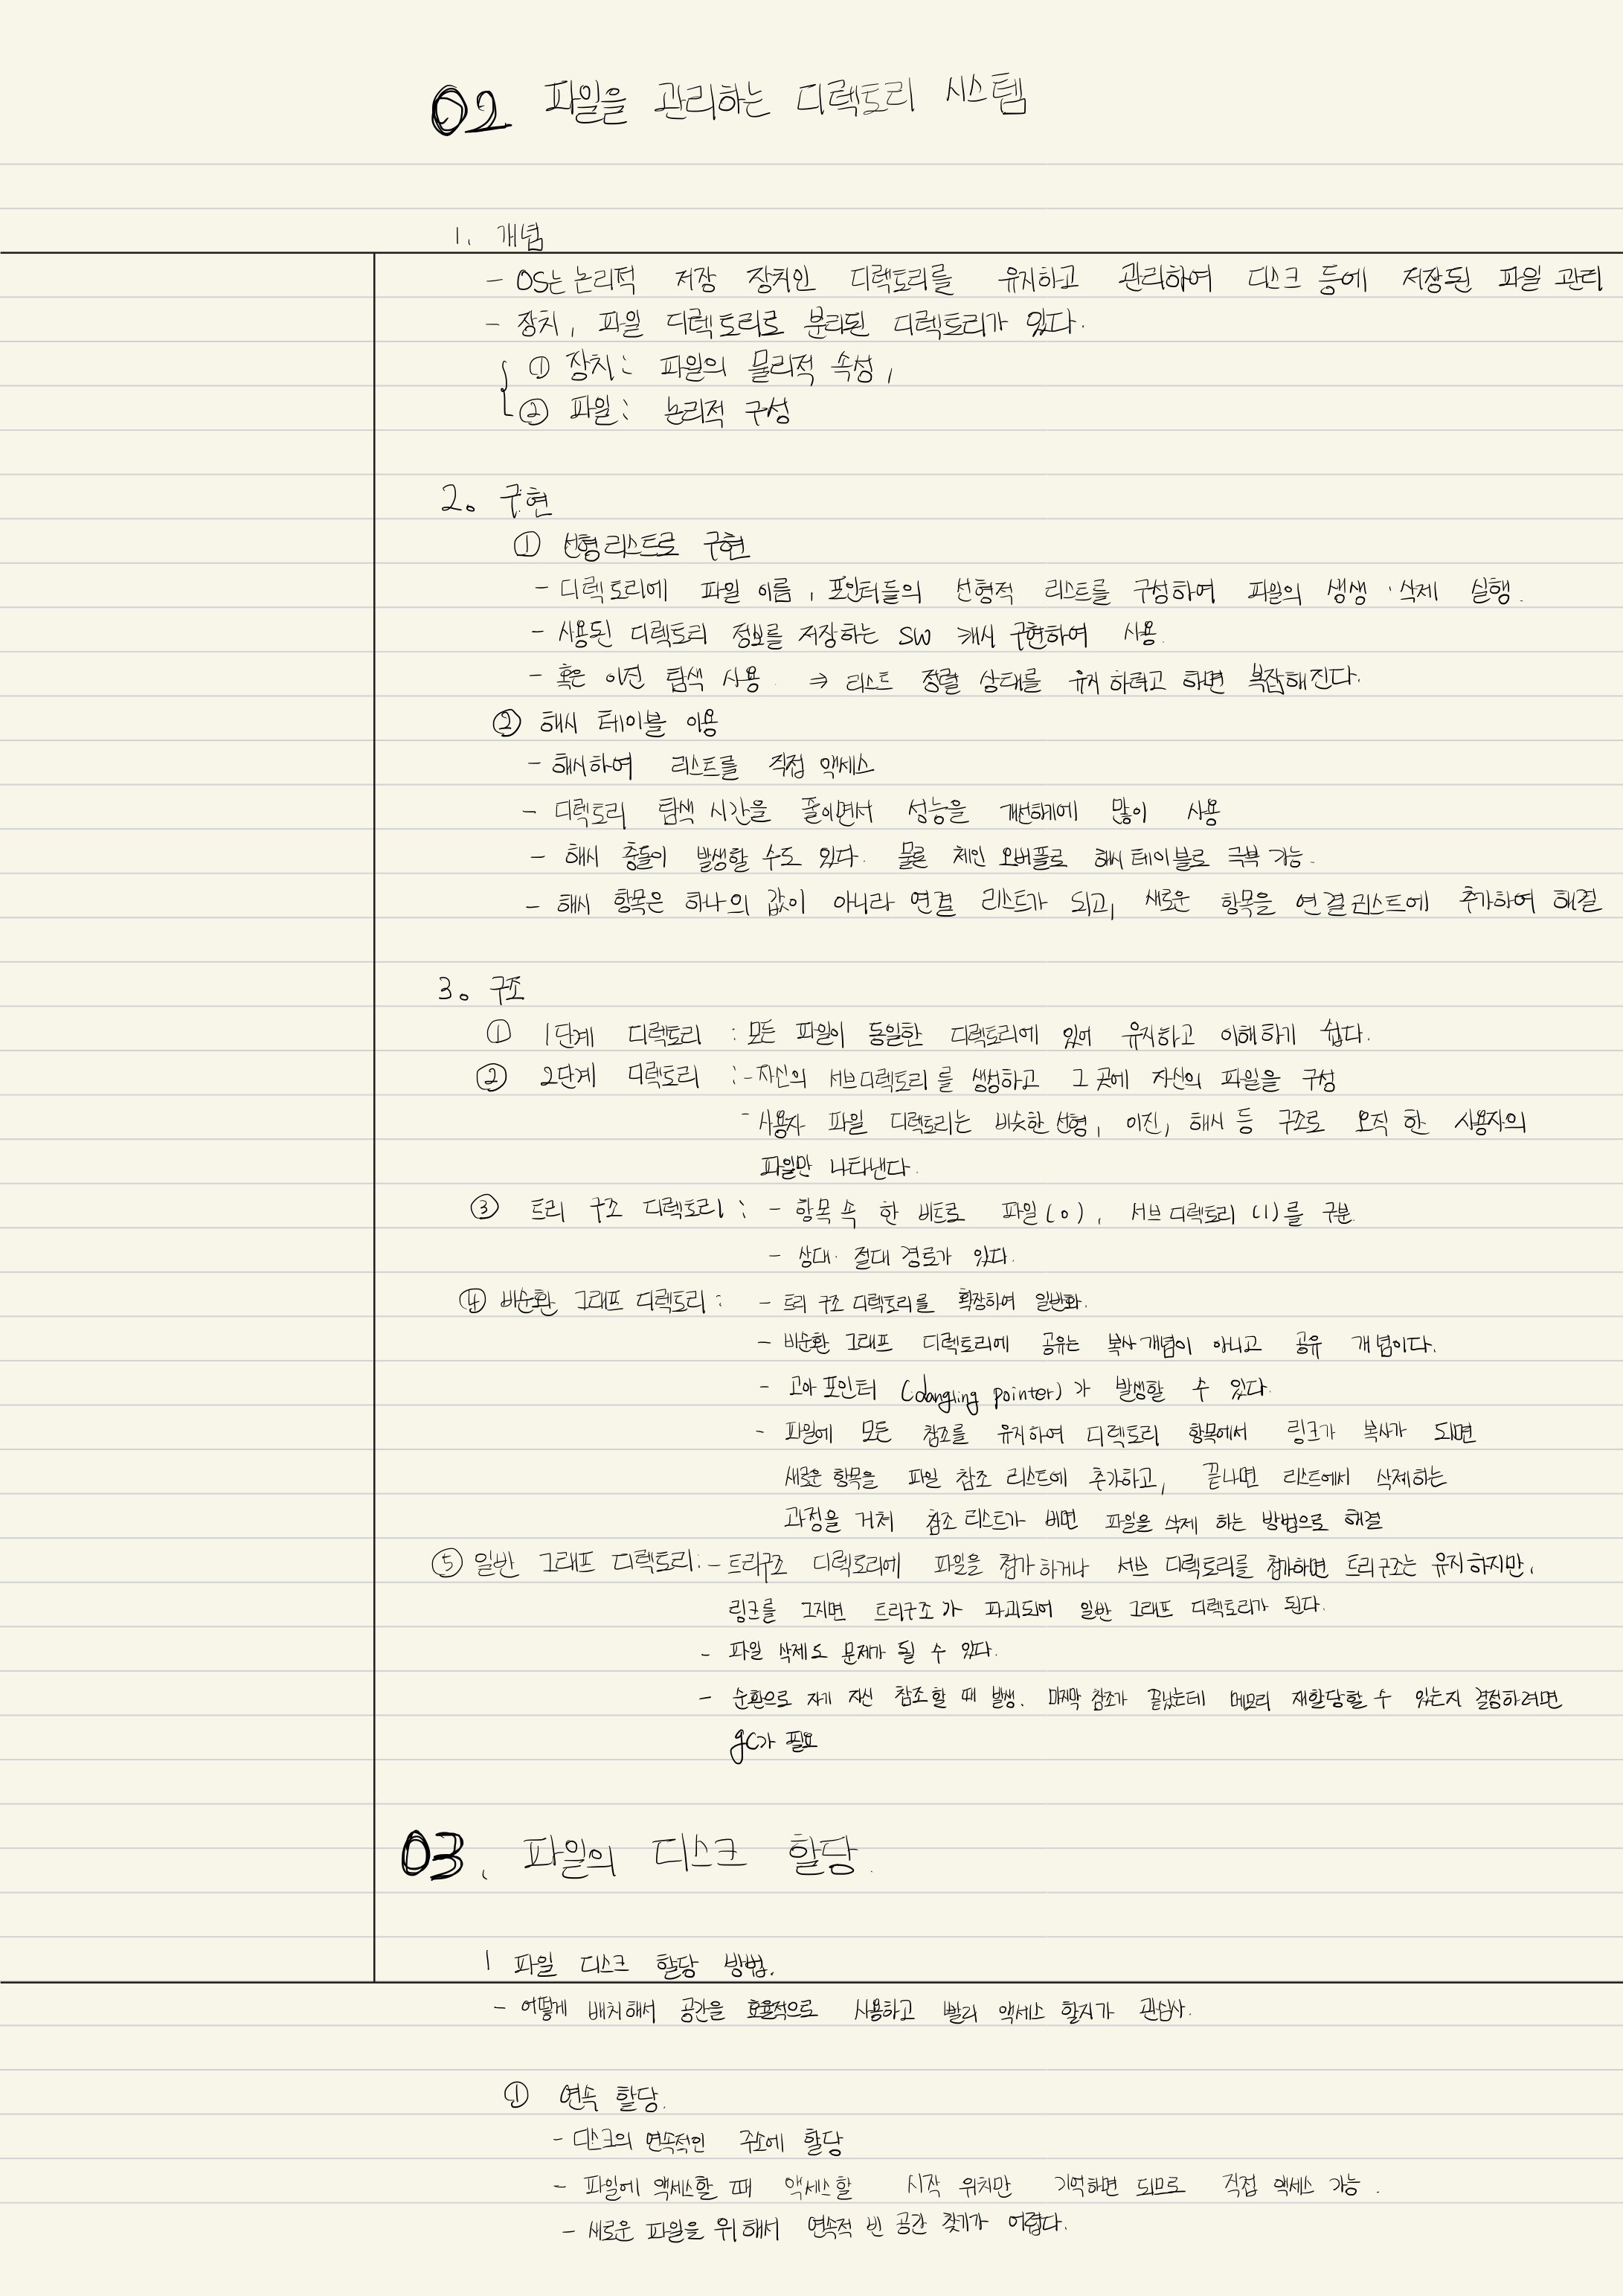 02 파일을 관리하는 디렉토리 시스템
1. 개념
- OS는 논리적 저장 장치인 디렉토리를 유지하고 관리하여 디스크 등에 저장된 파일 관리
- 장치, 파일 디렉토리로 분리된 디렉토리가 있다.
① 장치: 파일의 물리적 속성,
② 파일: 논리적 구성
2. 구현
① 선형리스트로 구현
- 디렉토리에 파일 이름, 포인터들의 선형적 리스트를 구성하여 파일의 생생·삭제 실행.
- 사용된 디렉토리 정보를 저장하는 SW 캐시 구현하여 사용.
- 혹은 이진 탐색 사용. ⇒ 리스트 정렬 상태를 유지하려고 하면 복잡해진다.
② 해시 테이블 이용
- 해시하여 리스트를 직접 액세스
- 디렉토리 탐색 시간을 줄이면서 성능을 개선하기에 많이 사용
- 해시 충돌이 발생할 수도 있다. 물론 체인 오버플로 해시 테이블로 극복 가능.
- 해시 항목은 하나의 값이 아니라 연결 리스트가 되고, 새로운 항목을 연결리스트에 추가하여 해결
3. 구조
① 1단계 디렉토리 : 모든 파일이 동일한 디렉토리에 있어 유지하고 이해하기 쉽다.
② 2단계 디렉토리 : - 자신의 서브디렉토리를 생성하고 그 곳에 자신의 파일을 구성
- 사용자 파일 디렉토리는 비슷한 선형, 이진, 해시 등 구조로 오직 한 사용자의
파일만 나타낸다.
③ 트리 구조 디렉토리 : - 항목 속 한 비트로 파일(0), 서브디렉토리(1)를 구분.
- 상대·절대 경로가 있다.
④ 비순환 그래프 디렉토리 : - 트리 구조 디렉토리를 확장하여 일반화.
- 비순환 그래프 디렉토리에 공유는 복사 개념이 아니고 공유 개념이다.
- 고아 포인터 (dangling pointer)가 발생할 수 있다.
- 파일에 모든 참조를 유지하여 디렉토리 항목에서 링크가 복사가 되면
새로운 항목을 파일 참조 리스트에 추가하고, 끝나면 리스트에서 삭제하는
과정을 거쳐 참조 리스트가 비면 파일을 삭제 하는 방법으로 해결
⑤ 일반 그래프 디렉토리: - 트리구조 디렉토리에 파일을 첨가하거나 서브 디렉토리를 첨가하면 트리구조는 유지하지만,
링크를 그지면 트리구조가 파괴되어 일반 그래프 디렉토리가 된다.
- 파일 삭제도 문제가 될 수 있다.
- 순환으로 자기 자신 참조할 때 발생. 마지막 참조가 끝났는데 메모리 재할당할 수 있는지 결정하려면
gc가 필요
03. 파일의 디스크 할당.
1 파일 디스크 할당 방법.
- 어떻게 배치해서 공간을 효율적으로 사용하고 빨리 액세스 할지가 관심사.
① 연속 할당.
- 디스크의 연속적인 주소에 할당
- 파일에 액세스할 때 액세스할 시작 위치만 기억하면 되므로 직접 액세스 가능.
- 새로운 파일을 위해서 연속적 빈 공간 찾기가 어렵다.